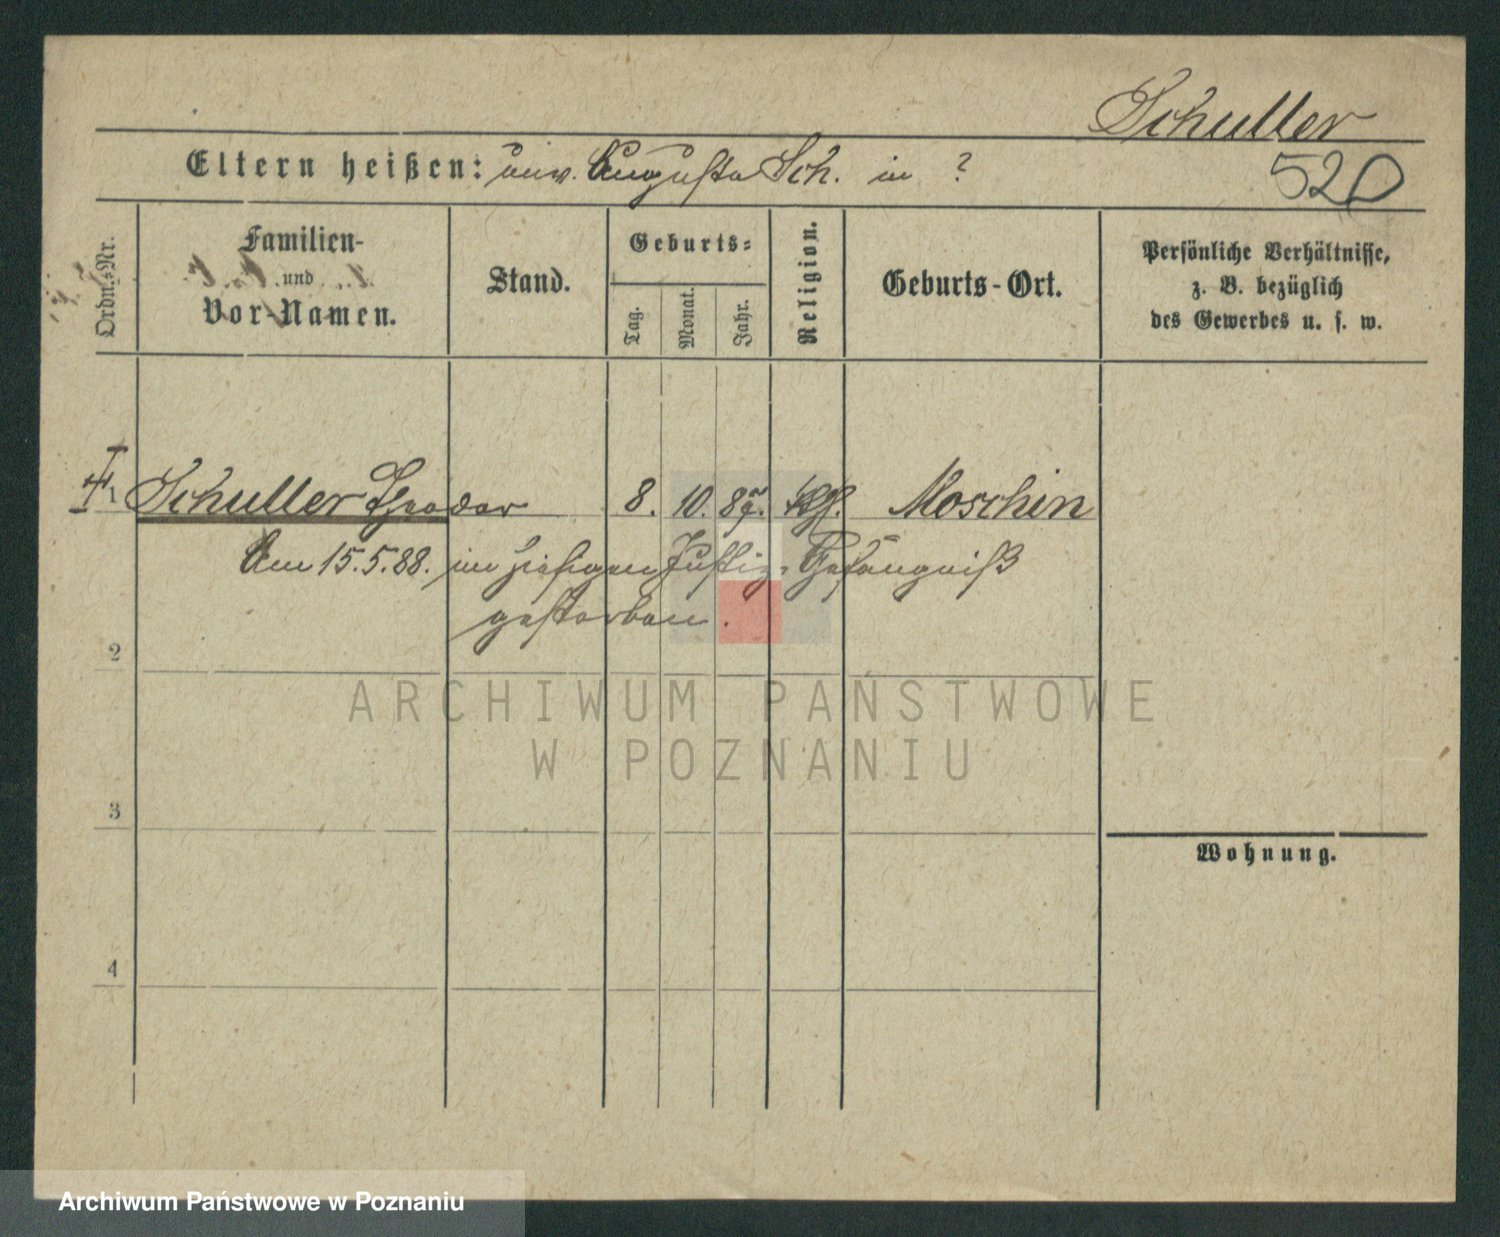 Schuller
Eltern heißen: unv. Auguste Sch. in ?
520
Ordn.-Nr.
Familien-
und
Vor-Namen.
Stand.
Geburts-
Tag.
Monat.
Jahr.
Religion.
Geburts-Ort.
Persönliche Verhältnisse,
z. B. bezüglich
des Gewerbes u. s. w.
1 Schuller Theodor 8. 10. 87. Kth. Moschin
Am 15.5.88. im hiesigen Justiz-Gefängniß
gestorben.
2
3
4
Wohnung.
ARCHIWUM PAŃSTWOWE
W POZNANIU
Archiwum Państwowe w Poznaniu